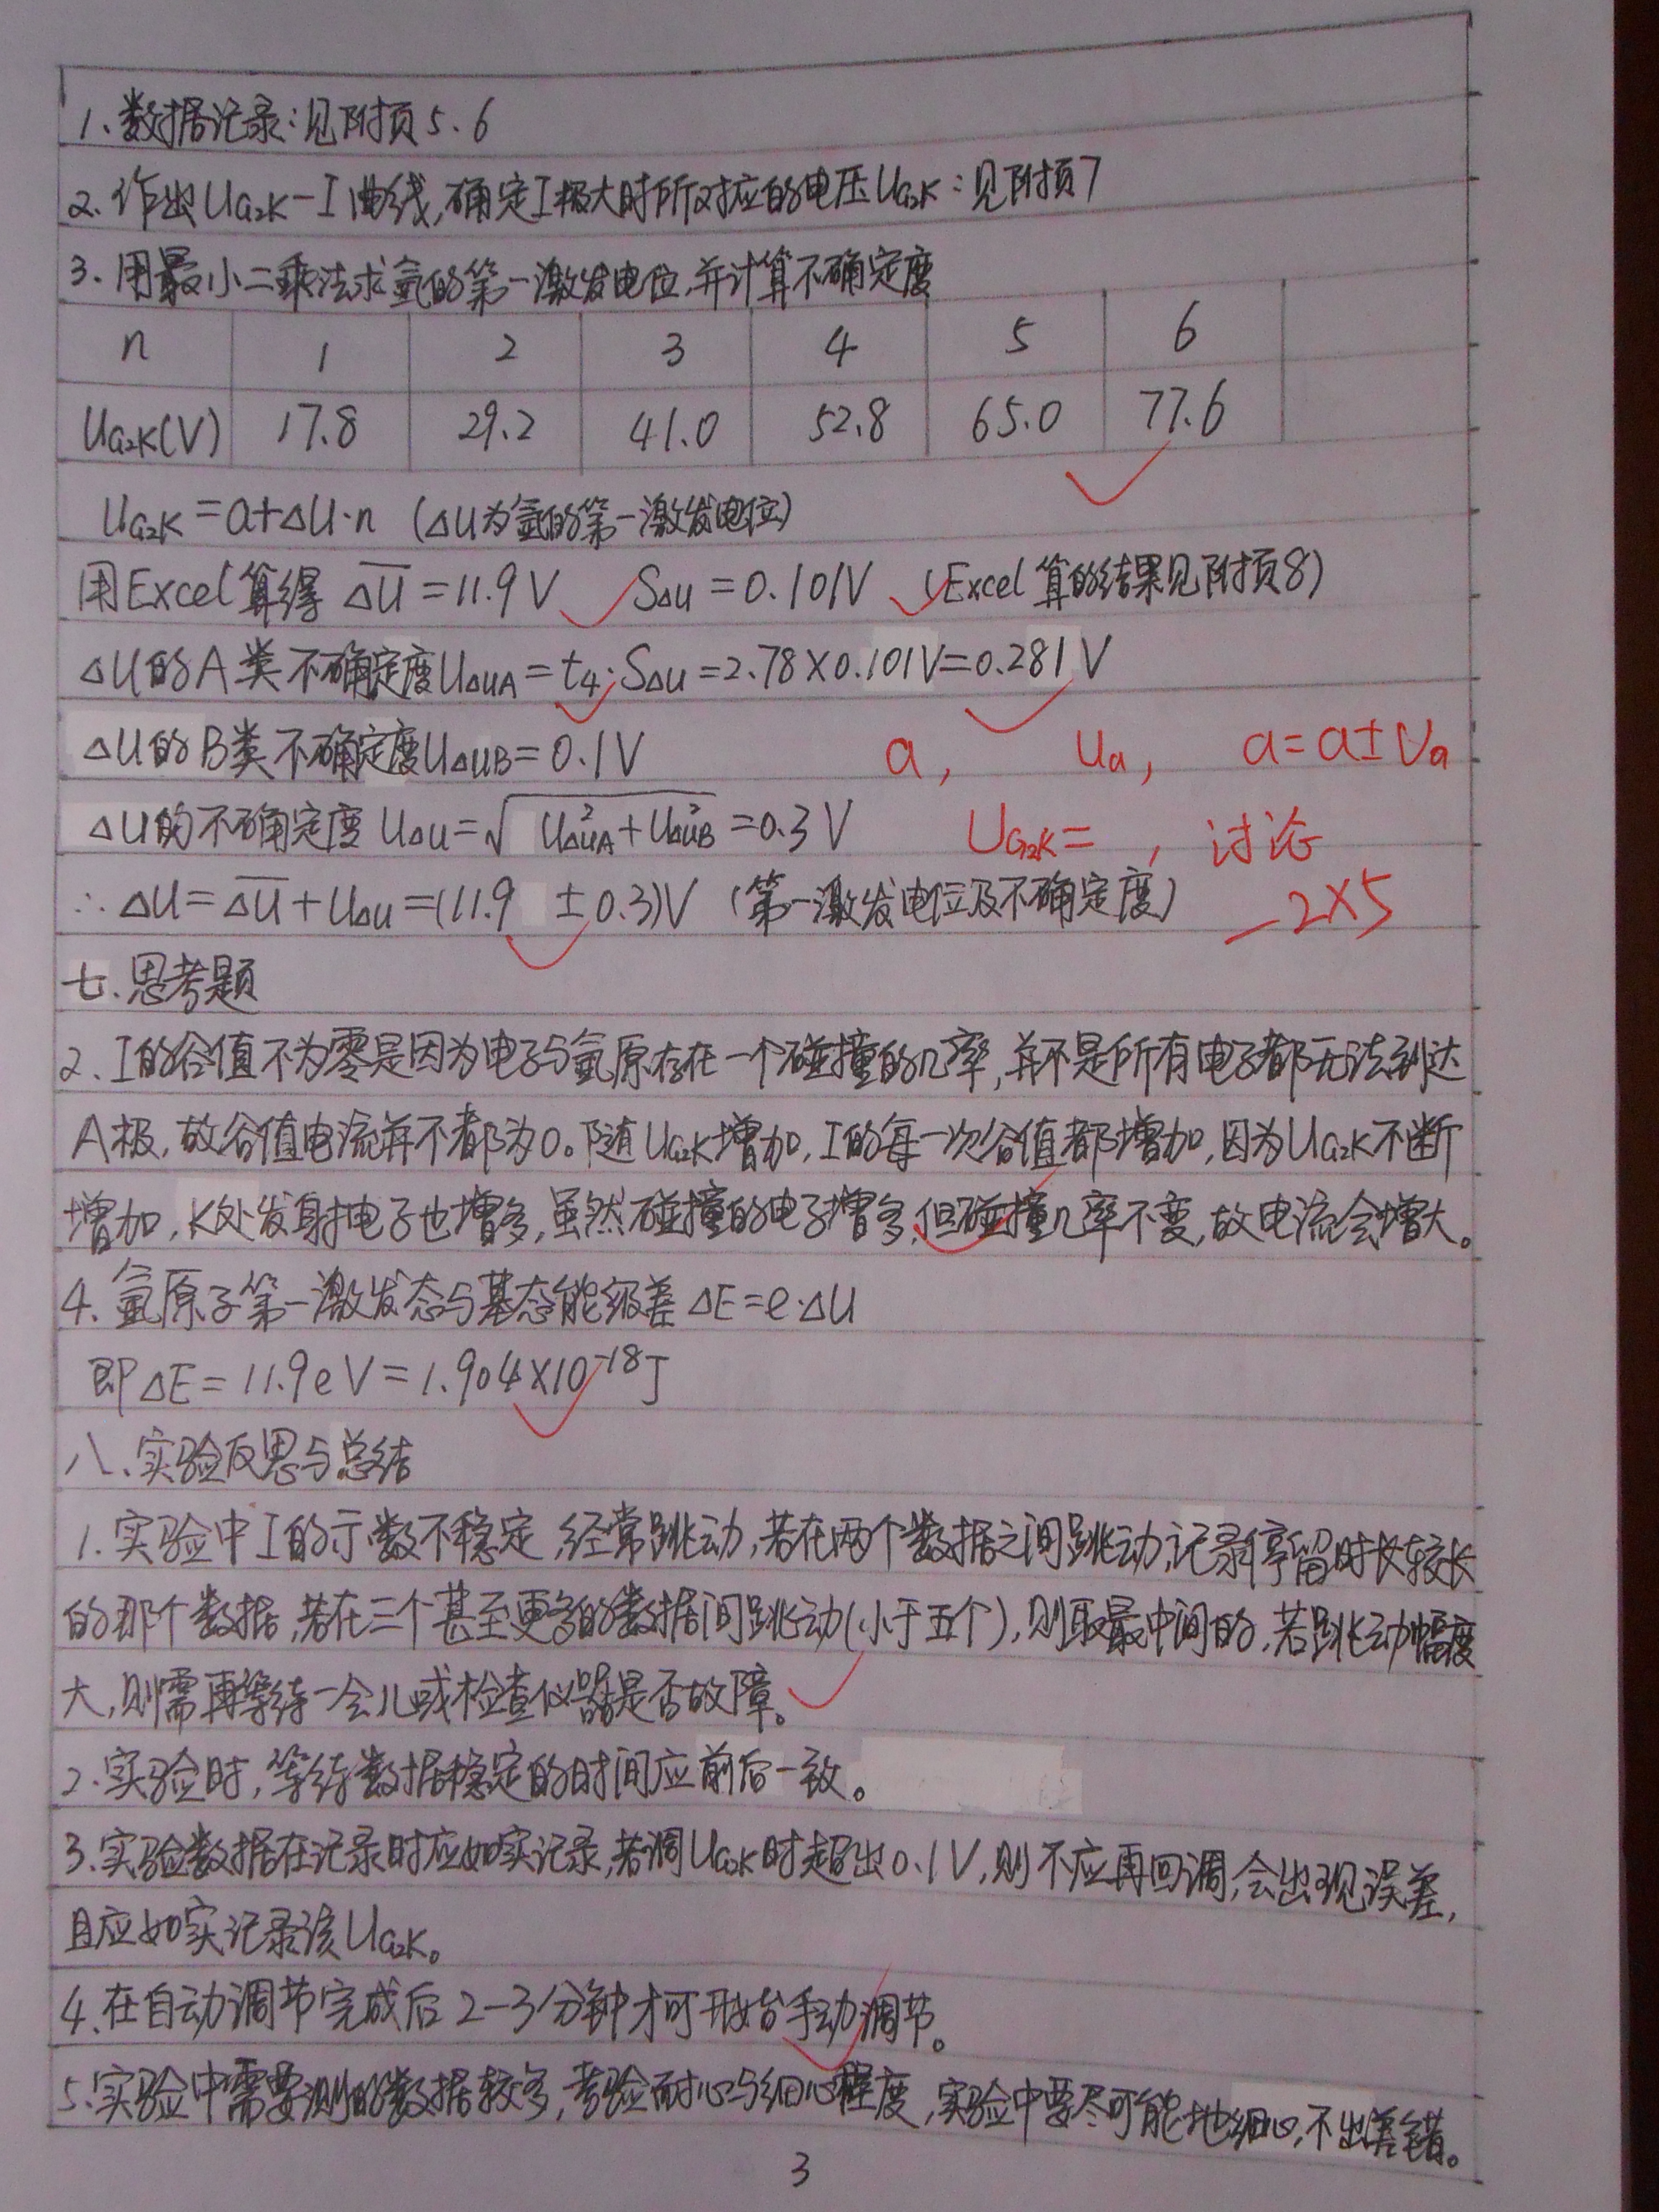 1、数据记录:见附页5、6
2、作出U_{G2K}-I曲线,确定I极大时所对应的电压U_{G2K}:见附页7
3、用最小二乘法求氩的第一激发电位,并计算不确定度
n 1 2 3 4 5 6
U_{G2K}(V) 17.8 29.2 41.0 52.8 65.0 77.6
U_{G2K}=a+ΔU·n (ΔU为氩的第一激发电位)
用Excel算得 \overline{ΔU}=11.9V S_{ΔU}=0.101V (Excel算的结果见附页8)
ΔU的A类不确定度U_{ΔUA}=t_4·S_{ΔU}=2.78×0.101V=0.281V
ΔU的B类不确定度U_{ΔUB}=0.1V a, U_a, a=a±U_a
ΔU的不确定度 U_{ΔU}=√(U_{ΔUA}²+U_{ΔUB}²)=0.3V U_{G2K}= , 讨论
∴ΔU=\overline{ΔU}+U_{ΔU}=(11.9±0.3)V (第一激发电位及不确定度) -2×5
七、思考题
2、I的谷值不为零是因为电子与氩原存在一个碰撞的几率,并不是所有电子都无法到达
A极,故谷值电流并不都为0。随U_{G2K}增加,I的每一次谷值都增加,因为U_{G2K}不断
增加,K处发射电子也增多,虽然碰撞的电子增多,但碰撞几率不变,故电流会增大。
4、氩原子第一激发态与基态能级差ΔE=e·ΔU
即ΔE=11.9eV=1.904×10^{-18}J
八、实验反思与总结
1、实验中I的示数不稳定,经常跳动,若在两个数据之间跳动,记录停留时长较长
的那个数据,若在三个甚至更多的数据间跳动(小于五个),则取最中间的,若跳动幅度
大,则需再等待一会儿或检查仪器是否故障。
2、实验时,等待数据稳定的时间应前后一致。
3、实验数据在记录时应如实记录,若调U_{G2K}时超出0.1V,则不应再回调,会出现误差,
且应如实记录该U_{G2K}。
4、在自动调节完成后2-3分钟才可开始手动调节。
5、实验中需要测的数据较多,考验耐心与细心程度,实验中要尽可能地细心,不出差错。
3